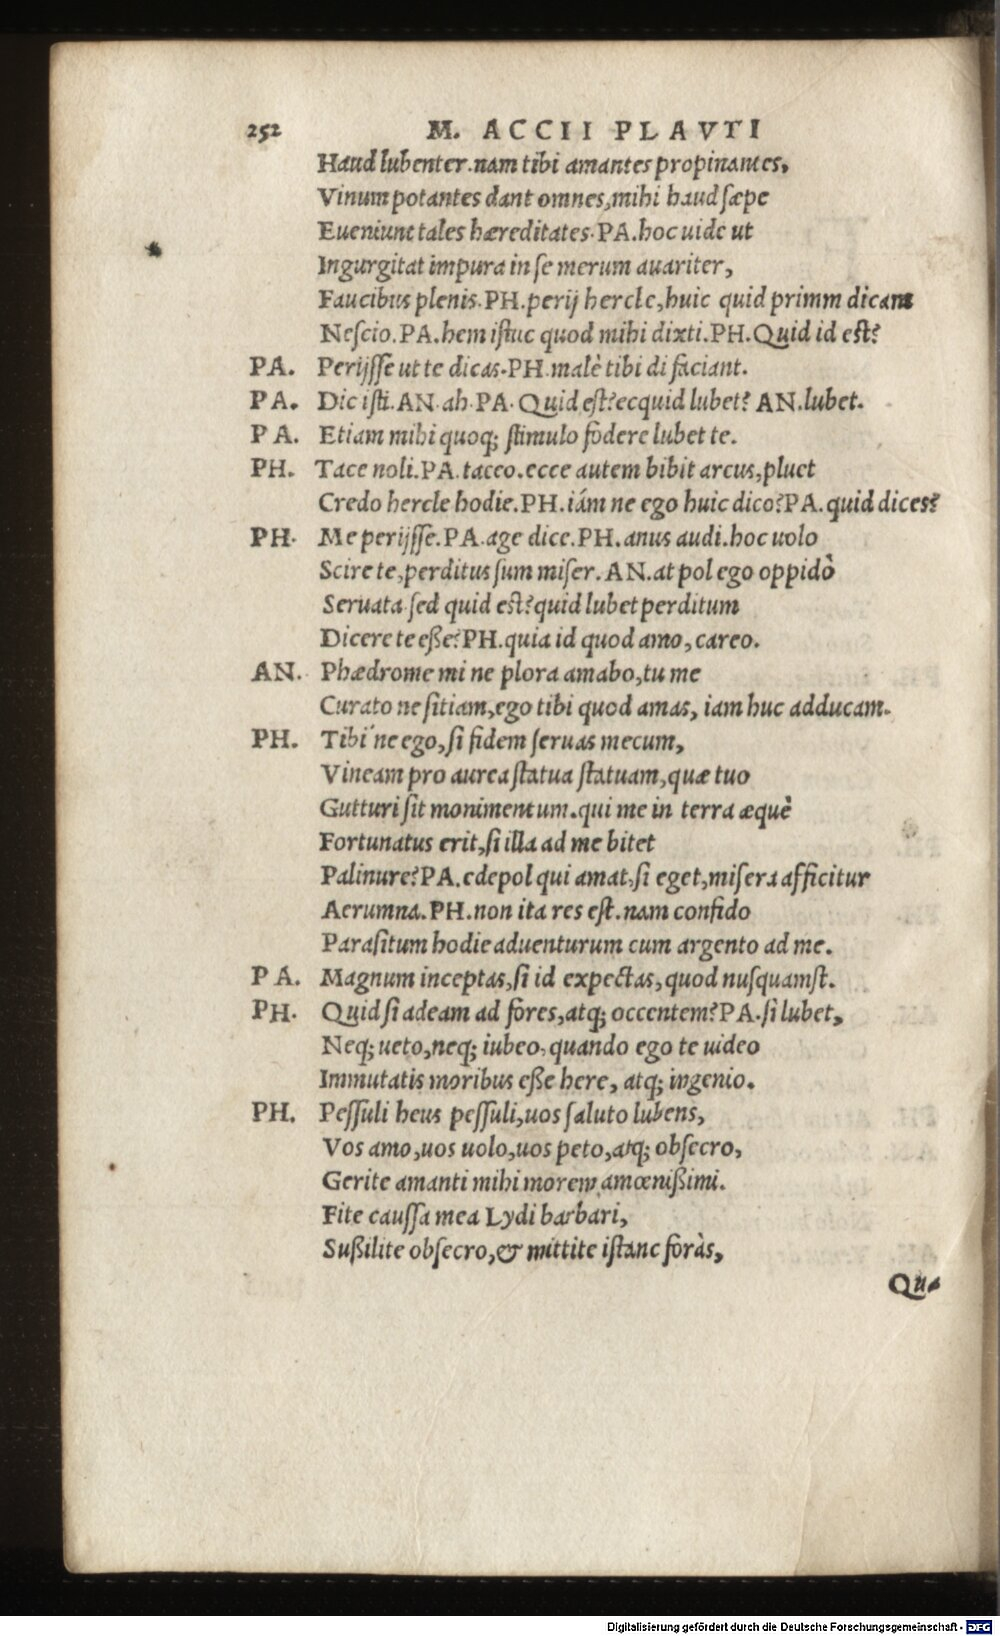 252 M. ACCII PLAVTI
Haud lubenter.nam tibi amantes propinantes,
Vinum potantes dant omnes,mihi haud sæpe
Eueniunt tales hæreditates.PA.hoc uide ut
Ingurgitat impura in se merum auariter,
Faucibus plenis.PH.perij hercle,huic quid primm dicam
Nescio.PA.hem istuc quod mihi dixti.PH.Quid id est?
PA. Perijsse ut te dicas.PH.malè tibi di faciant.
PA. Dic isti.AN.ah.PA.Quid est?ecquid lubet? AN.lubet.
PA. Etiam mihi quoq; stimulo fodere lubet te.
PH. Tace noli.PA.taceo.ecce autem bibit arcus,pluet
Credo hercle hodie.PH.iám ne ego huic dico?PA.quid dices?
PH. Me perijsse.PA.age dice.PH.anus audi.hoc uolo
Scire te,perditus sum miser.AN.at pol ego oppidò
Seruata.sed quid est?quid lubet perditum
Dicere te eße?PH.quia id quod amo,careo.
AN. Phædrome mi ne plora amabo,tu me
Curato ne sitiam,ego tibi quod amas, iam huc adducam.
PH. Tibi ne ego,si fidem seruas mecum,
Vineam pro aurea statua statuam,quæ tuo
Gutturi sit monimentum.qui me in terra æquè
Fortunatus erit,si illa ad me bitet
Palinure?PA.edepol qui amat,si eget,misera afficitur
Aerumna.PH.non ita res est.nam confido
Parasitum hodie aduenturum cum argento ad me.
PA. Magnum inceptas,si id expectas,quod nusquamst.
PH. Quid si adeam ad fores,atq; occentem?PA.si lubet,
Neq; ueto,neq; iubeo,quando ego te uideo
Immutatis moribus eße here, atq; ingenio.
PH. Pessuli heus pessuli,uos saluto lubens,
Vos amo,uos uolo,uos peto,atq; obsecro,
Gerite amanti mihi morem amœnißimi.
Fite caussa mea Lydi barbari,
Sußilite obsecro,& mittite istanc foràs,
Qu-
Digitalisierung gefördert durch die Deutsche Forschungsgemeinschaft - DFG